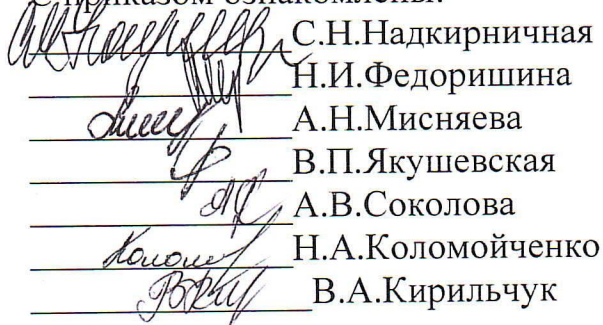 С приказом ознакомлены:
С.Н.Надкирничная
Н.И.Федоришина
А.Н.Мисняева
В.П.Якушевская
А.В.Соколова
Н.А.Коломойченко
В.А.Кирильчук